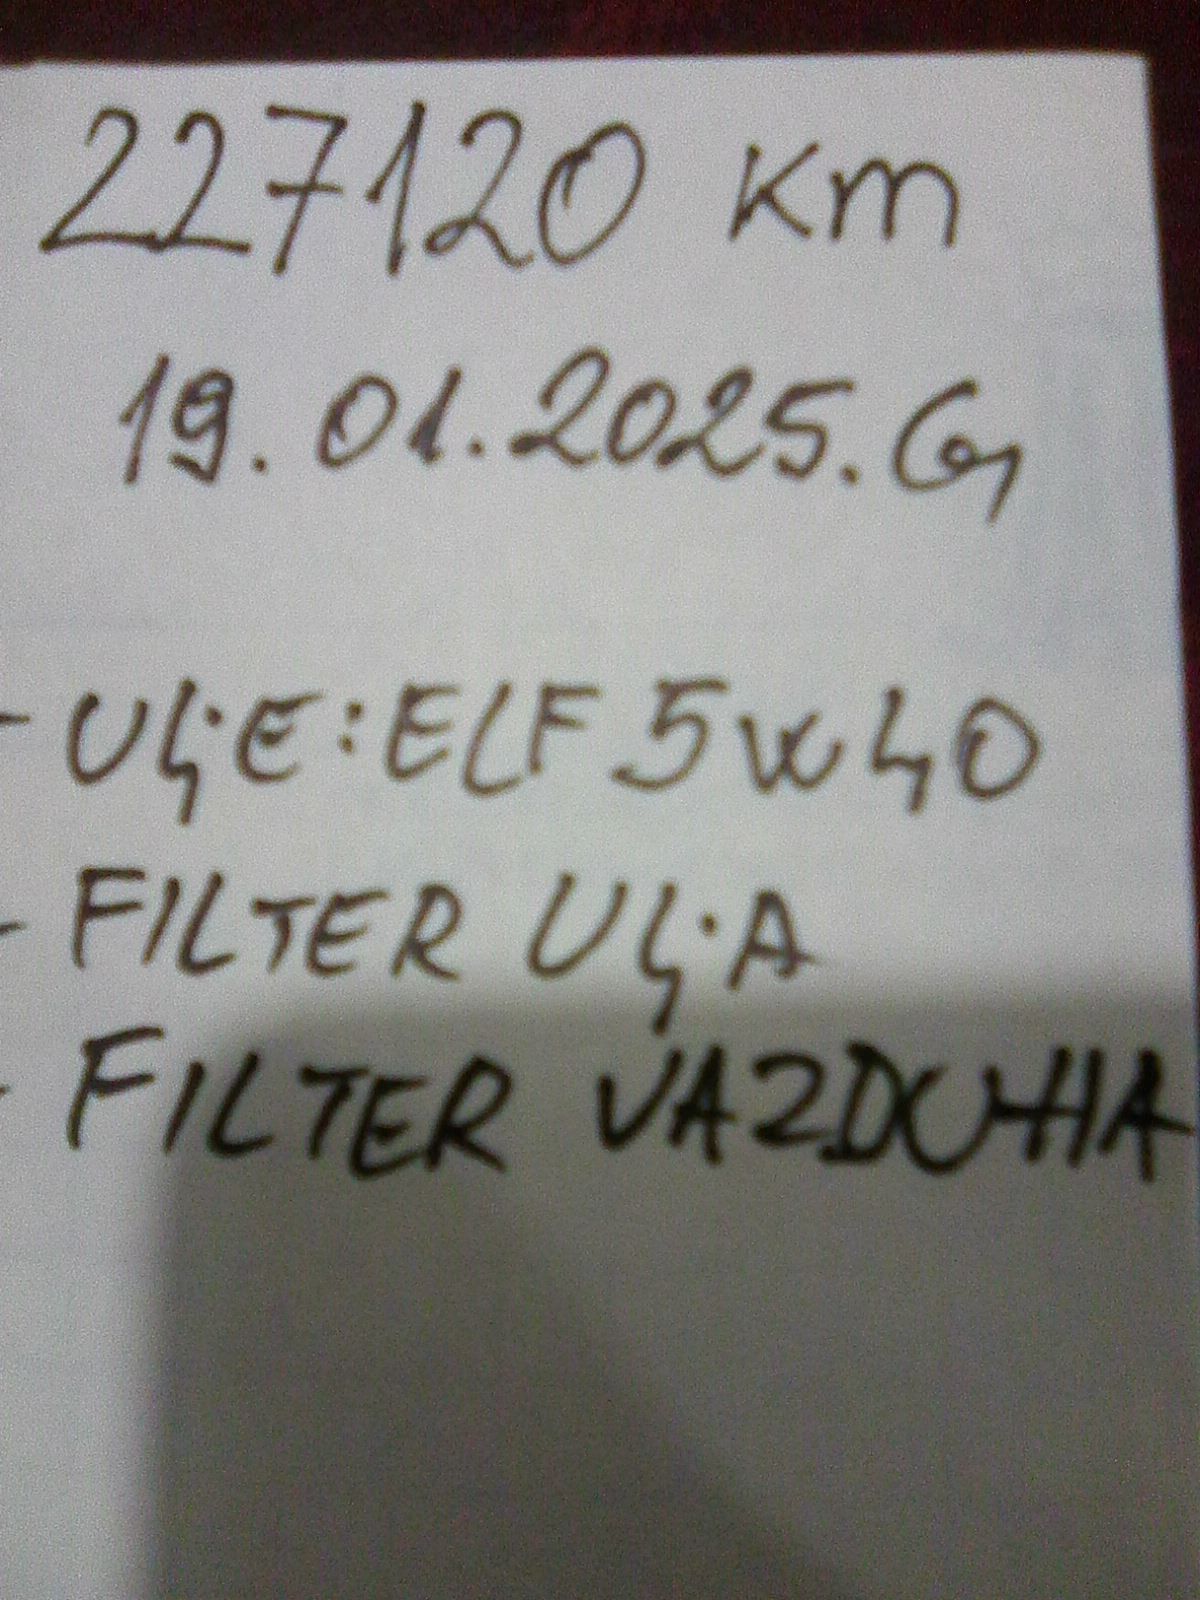 227120 km
19.01.2025. God
- ULJE: ELF 5W40
- FILTER ULJA
- FILTER VAZDUHA